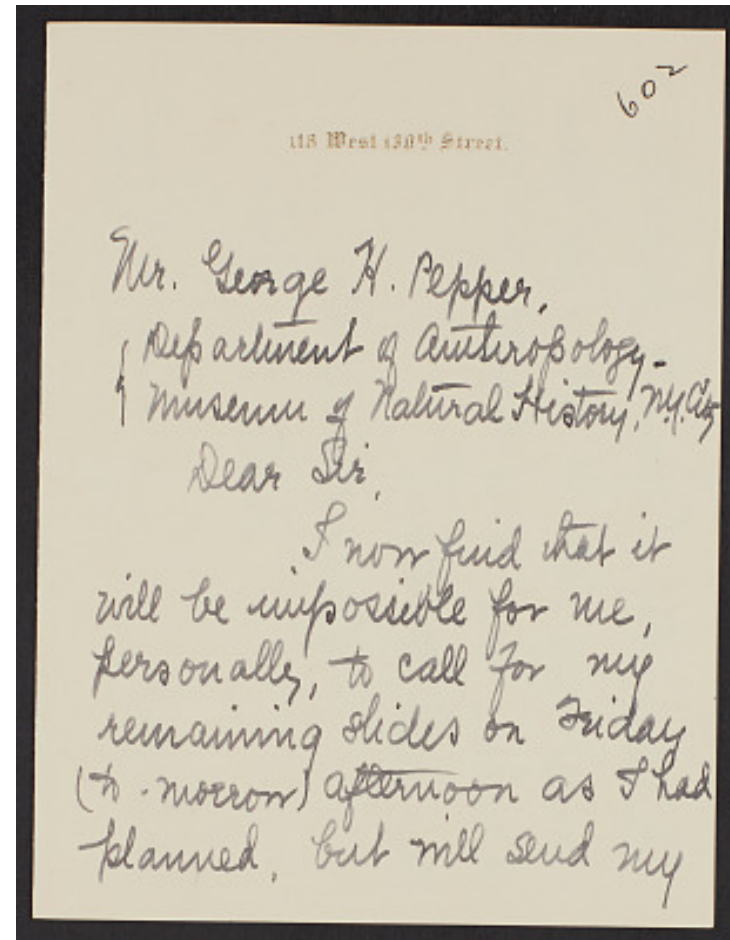 602
118 West 130th Street.
Mr. George H. Pepper,
Department of Anthropology-
Museum of Natural History, N.Y. City
Dear Sir,
I now find that it
will be impossible for me,
personally, to call for my
remaining slides on Friday
(to-morrow) afternoon as I had
planned, but will send my